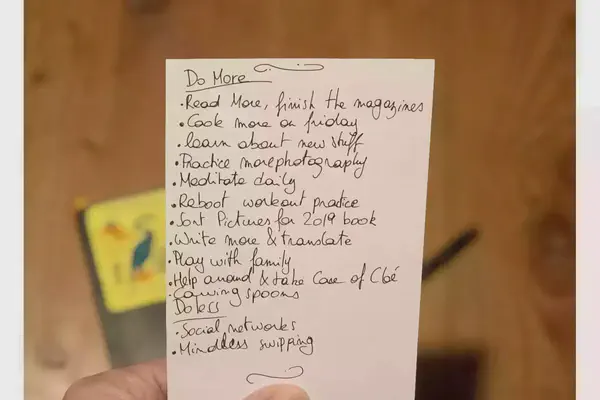 Do More
• Read More, finish the magazines
• Cook more on friday
• learn about new stuff
• Practice more photography
• Meditate daily
• Reboot workout practice
• Sort Pictures for 2019 book
• Write more & translate
• Play with family
• Help around & take Care of Cloé
• Carving spoons
Do less
• Social networks
• Mindless swipping